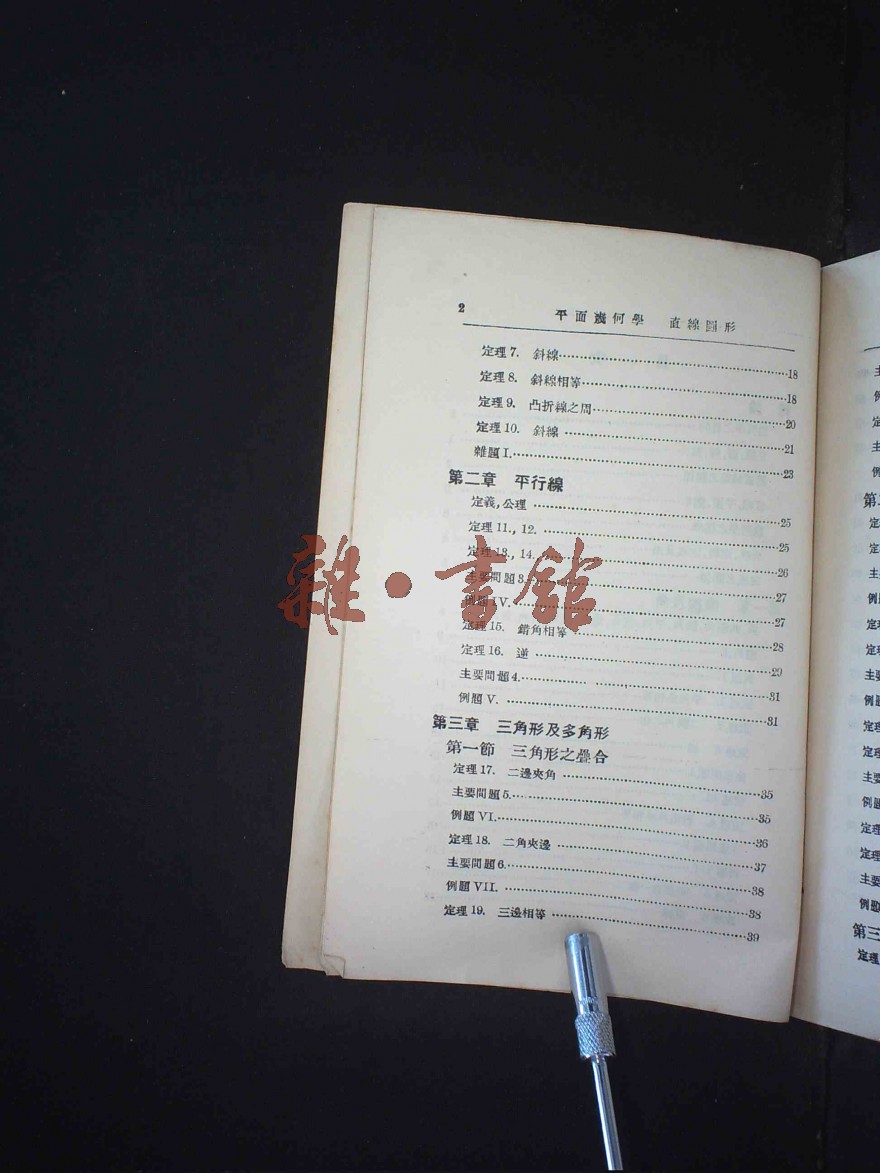 2 平面幾何學 直線圖形
定理7. 斜線……18
定理8. 斜線相等……18
定理9. 凸折線之周……20
定理10. 斜線……21
雜題I.……23
第二章 平行線
定義,公理……25
定理11., 12.……25
定理13., 14.……26
主要問題3.……27
例題IV.……27
定理15. 錯角相等……28
定理16. 逆……29
主要問題4.……31
例題V.……31
第三章 三角形及多角形
第一節 三角形之疊合
定理17. 二邊夾角……35
主要問題5.……35
例題VI.……36
定理18. 二角夾邊……37
主要問題6.……38
例題VII.……38
定理19. 三邊相等……39
雜·書館
主
例
定
主
例
第
定
定
主
例
定
定
主
例題
定理
定理
主要
例題
定理
定理
主要
例題
第三
定理